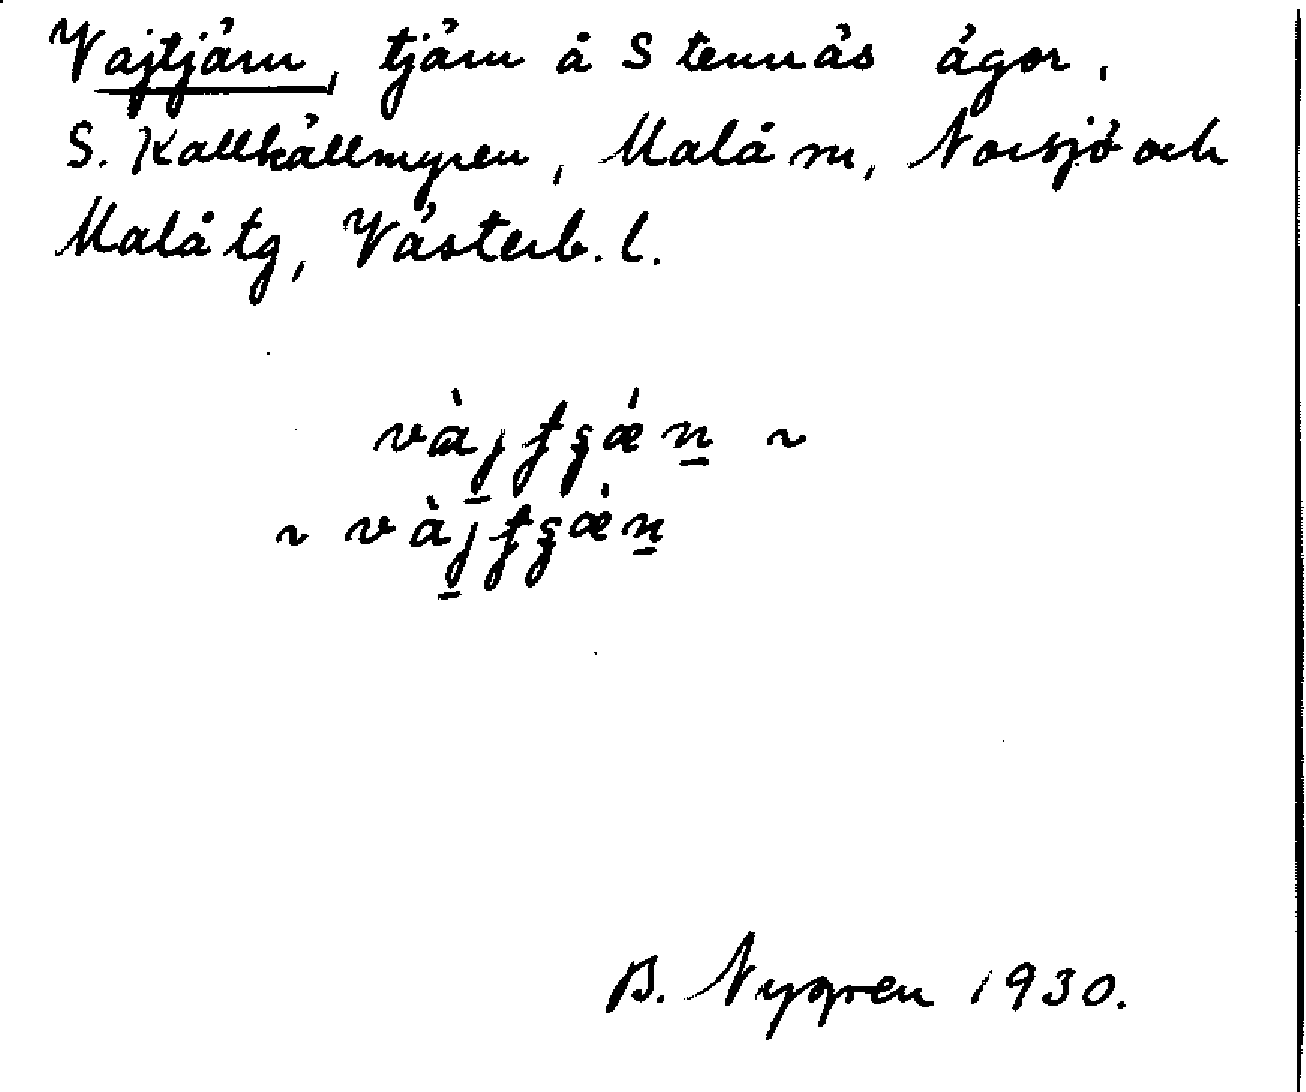 Vajtjärn, tjärn å Stennäs ägor,
S. Kallkällmyren, Malå sn, Norsjö och
Malå tg, Västerb. l.
~
~
B. Nygren 1930.